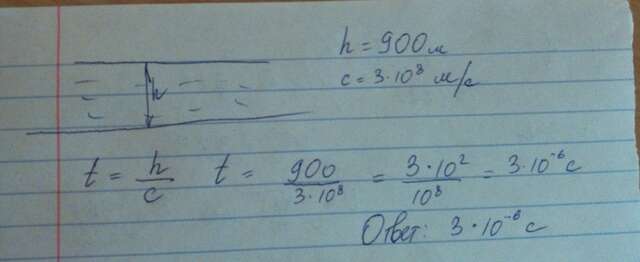 h = 900 м
c = 3·10⁸ м/с
h
t = h/c t = 900/3·10⁸ = 3·10²/10⁸ = 3·10⁻⁶ с
Ответ: 3·10⁻⁶ с